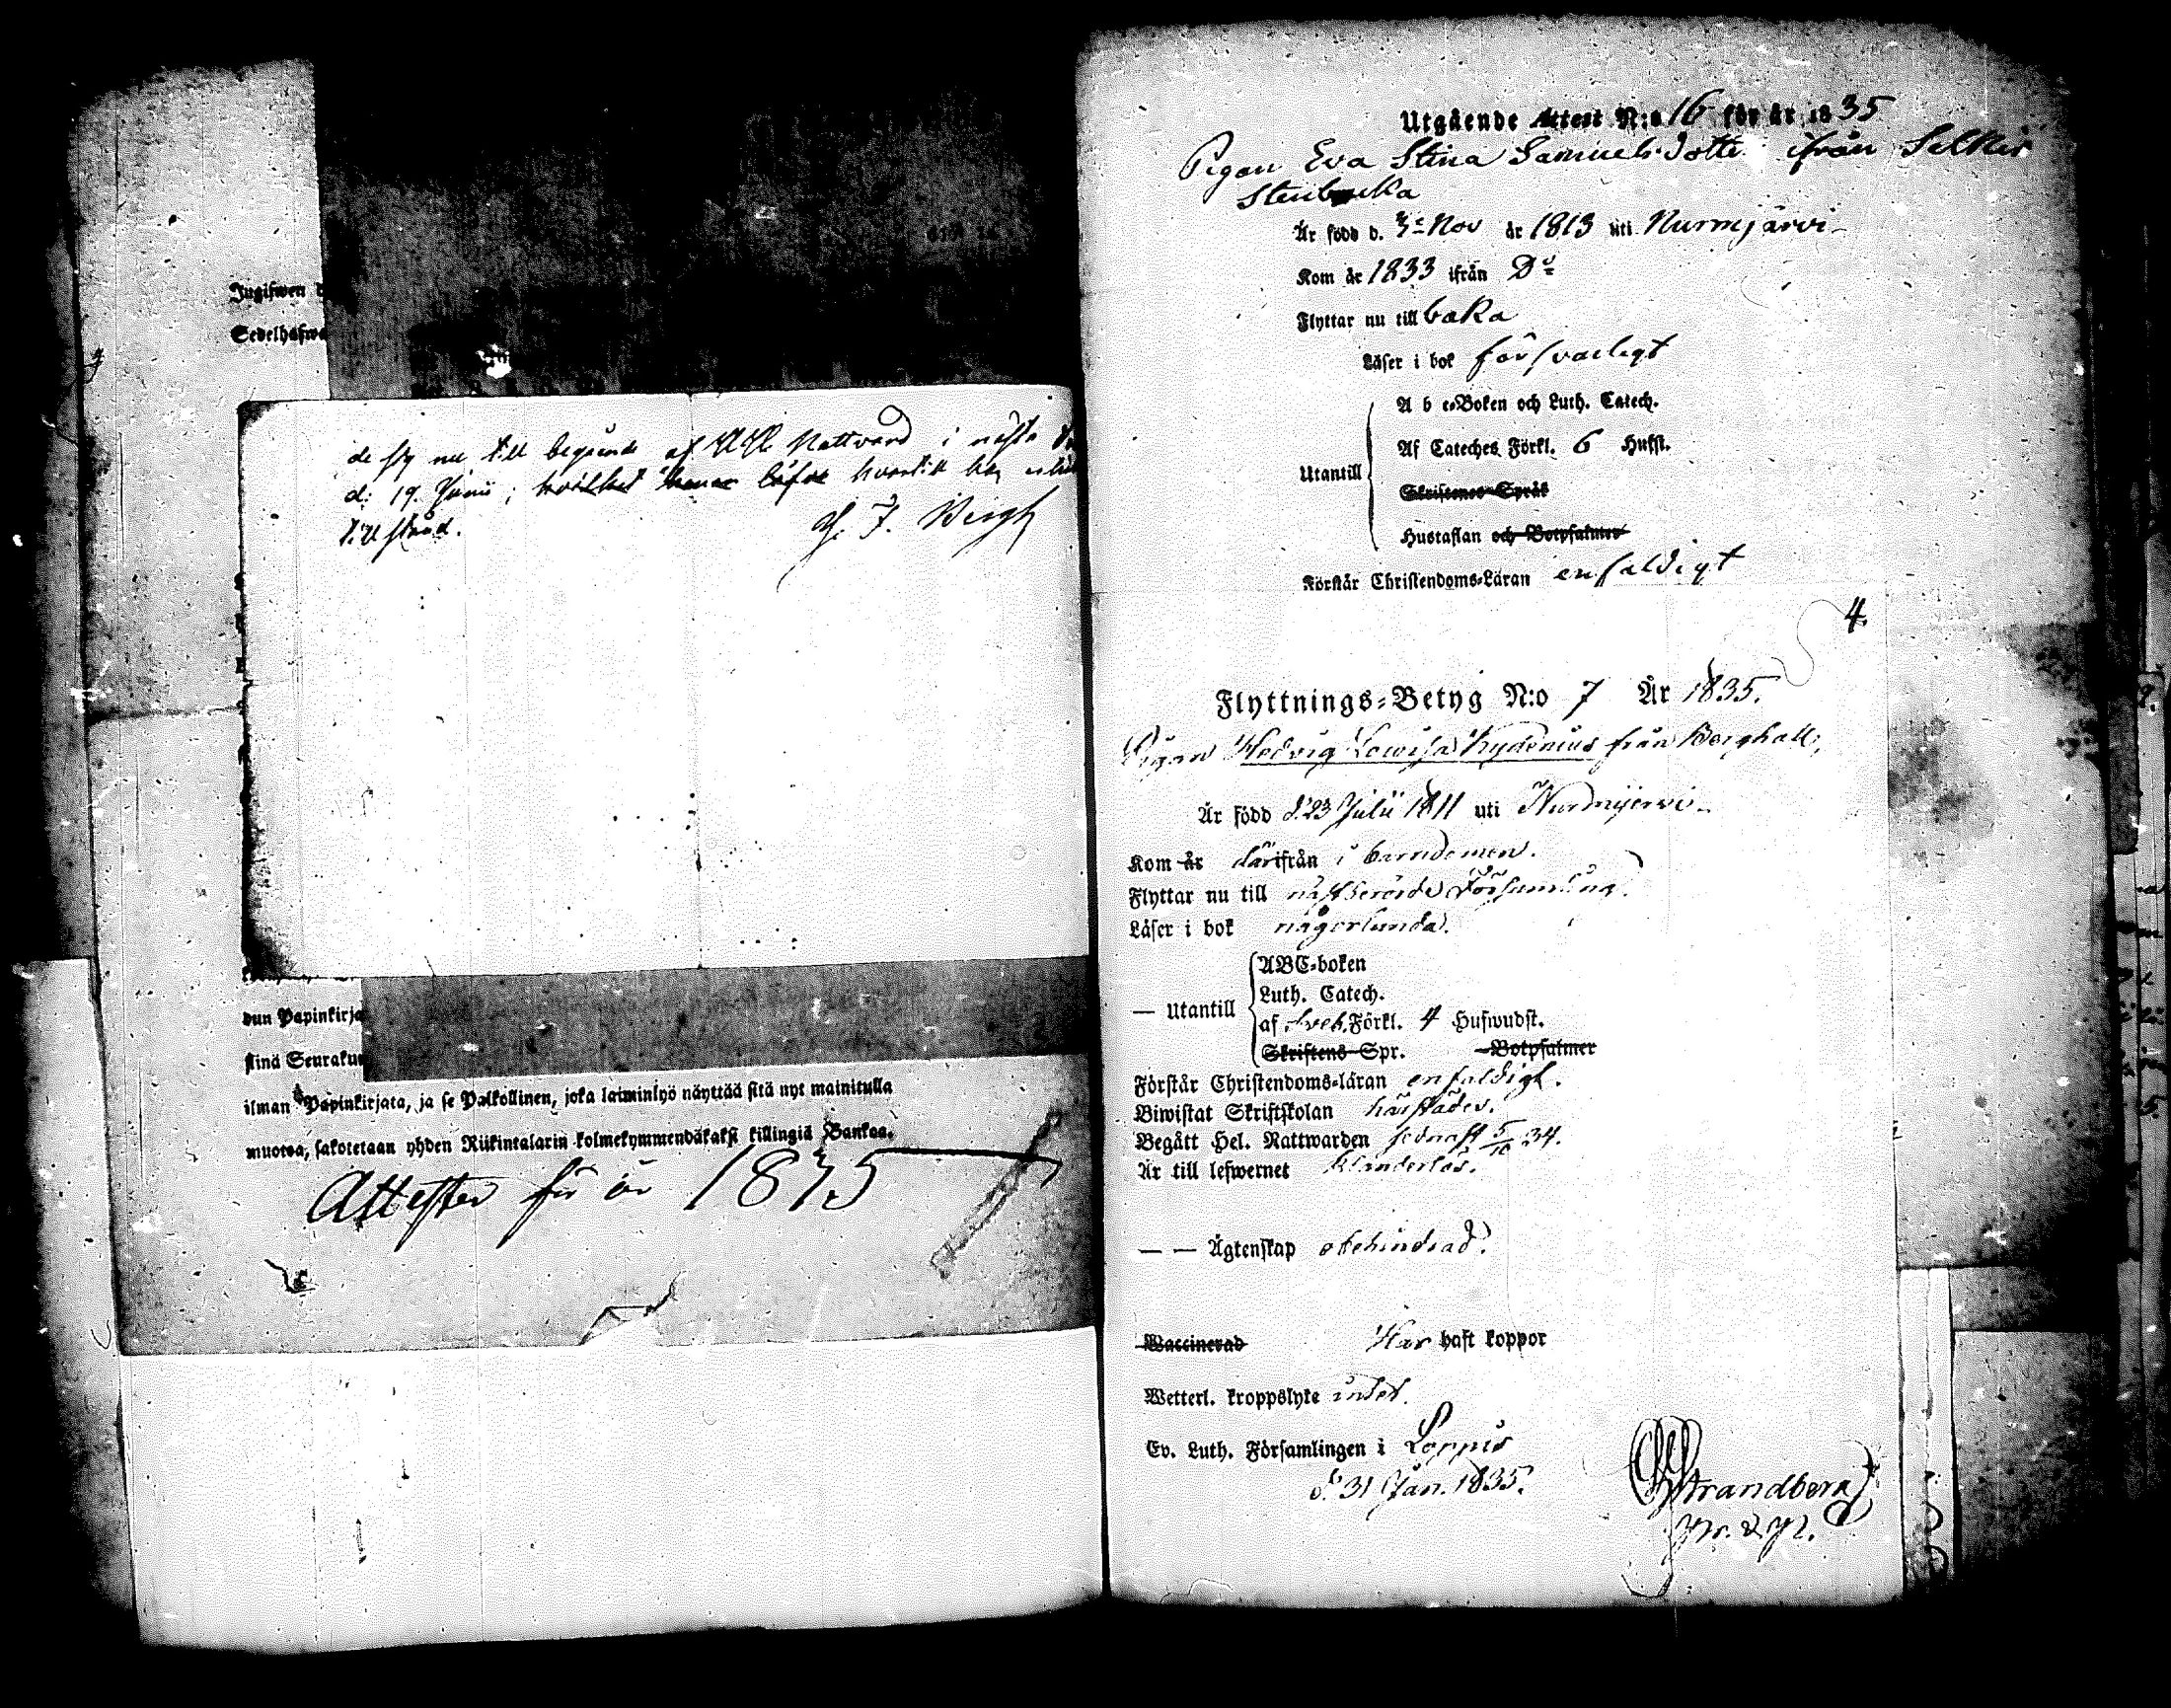 Ingifwen
Sedelhafwa
de sig nu till begående af HH Nattvard i nästa
d: 19. Junii; hvartill hon
till stånd.
dun Papinkirja
stinä Seuraku
ilman Papinkirjata, ja se Palkollinen, joka laiminlyö näyttää sitä nyt mainitulla
muotoa, sakotetaan yhden Riikintalarin kolmekymmendäkaksi killingiä Bankoa.
Attester för år 1835
Utgående Attest N:o 16 för år 1835
Pigan Eva Stina Samuelsdotter ifrån Selkis
Är född d. 3 Nov år 1813 uti Nurmijärvi
Kom år 1833 ifrån Do
Flyttar nu till baka
Läser i bok försvarligt
A b c-Boken och Luth. Catech.
Af Cateches Förkl. 6 Hufst.
Utantill
Skriftenes Språk
Hustaflan och Botpsalmer
Förstår Christendoms-Läran enfaldigt
4.
Flyttnings-Betyg N:o 7 År 1835.
Pigan Hedvig Lowisa Kydenius från Berghall,
Är född d. 23 Julii 1811 uti Nurmijervi
Kom år därifrån i barndomen.
Flyttar nu till nästberörde Församling.
Läser i bok någorlunda.
ABC-boken
Luth. Catech.
— Utantill
af Sveb. Förkl. 4 Hufwudst.
Skriftens Spr. Botpsalmer
Förstår Christendoms-läran enfaldigt.
Biwistat Skriftskolan härstädes.
Begått Hel. Nattwarden sednast 5/10 34.
Är till lefwernet klanderlös.
— — Ägtenskap obehindrad.
Waccinerad Har haft koppor
Wetterl. kroppslyte intet.
Ev. Luth. Församlingen i Loppis
d. 31 Jan. 1835.
Strandberg